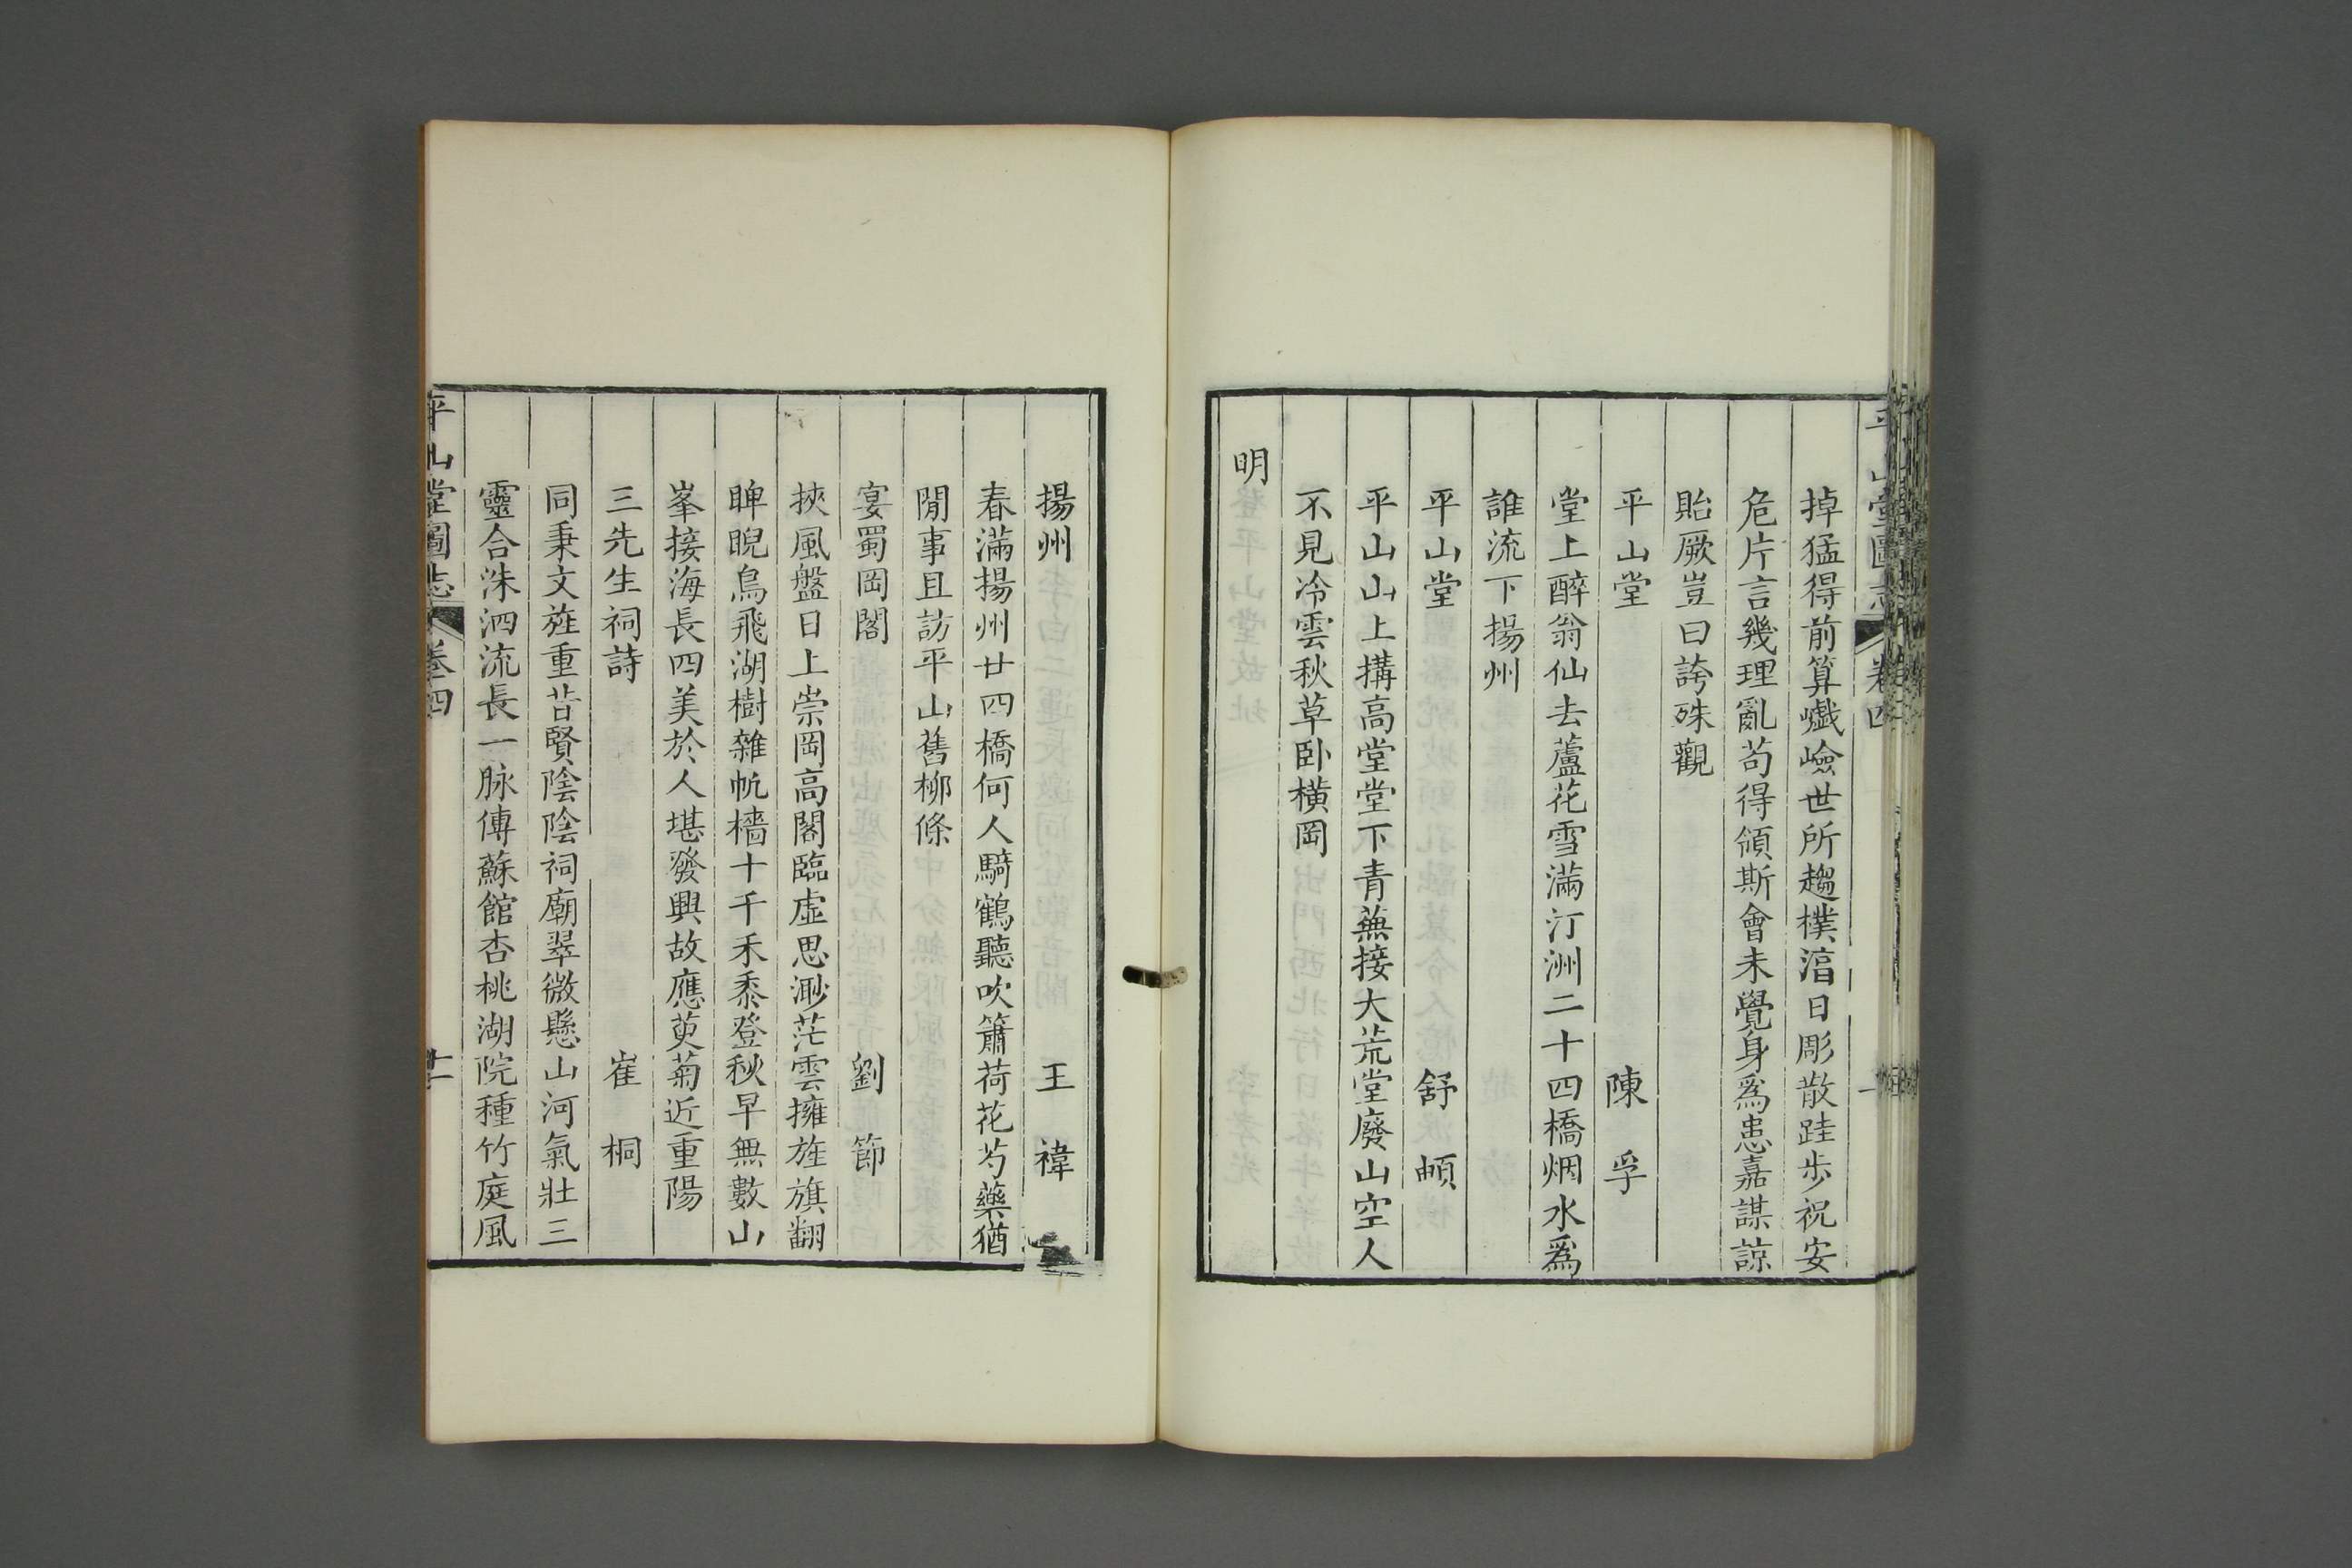 掉猛得前算巇嶮世所趨樸湻日彫散跬步祝安
危片言幾理亂苟得領斯會未覺身爲患嘉謀諒
貽厥豈曰誇殊觀
平山堂 陳孚
堂上醉翁仙去蘆花雪滿汀洲二十四橋烟水爲
誰流下揚州
平山堂 舒頔
平山山上搆高堂堂下青蕪接大荒堂廢山空人
不見冷雲秋草卧橫岡
明
揚州 王禕
春滿揚州廿四橋何人騎鶴聽吹簫荷花芍藥猶
閒事且訪平山舊柳條
宴蜀岡閣 劉節
挾風盤日上崇岡高閣臨虛思渺茫雲擁旌旗翻
睥睨鳥飛湖樹雜帆檣十千禾黍登秋早無數山
峯接海長四美於人堪發興故應萸菊近重陽
三先生祠詩 崔桐
同秉文旌重昔賢陰陰祠廟翠微懸山河氣壯三
靈合洙泗流長一脉傳蘇館杏桃湖院種竹庭風
平山堂圖志 卷四